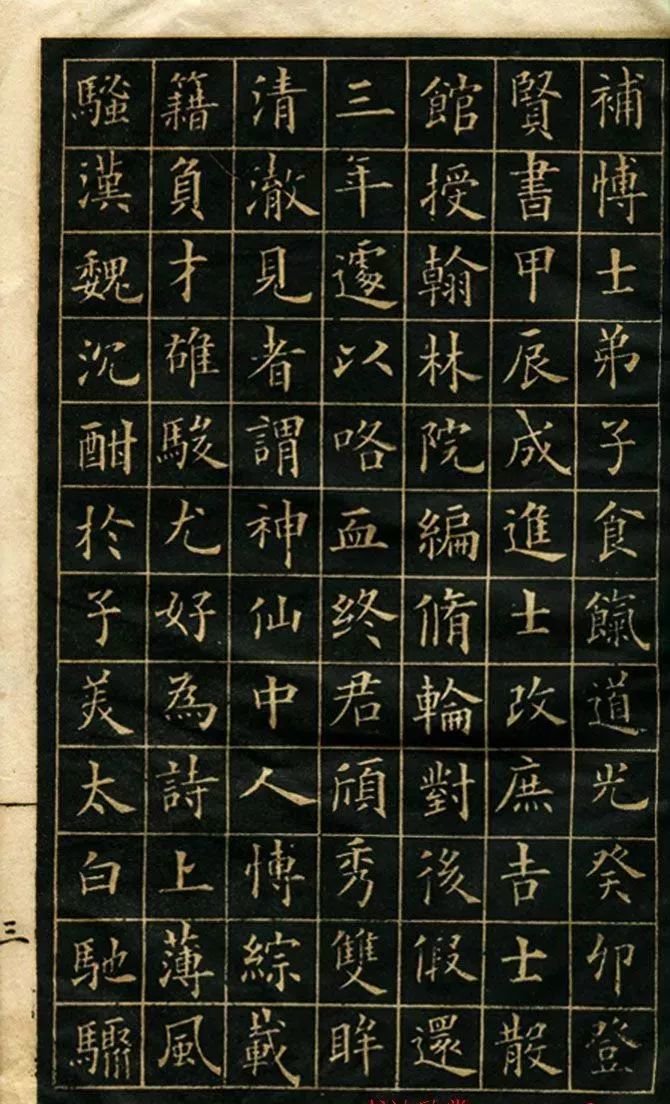 補愽士弟子食餼道光癸卯登
賢書甲辰成進士改庶吉士散
館授翰林院編脩輪對後假還
三年遽以咯血終君頎秀雙眸
清澈見者謂神仙中人愽綜載
籍負才雄駿尤好為詩上薄風
騷漢魏沉酣於子美太白馳驟
三